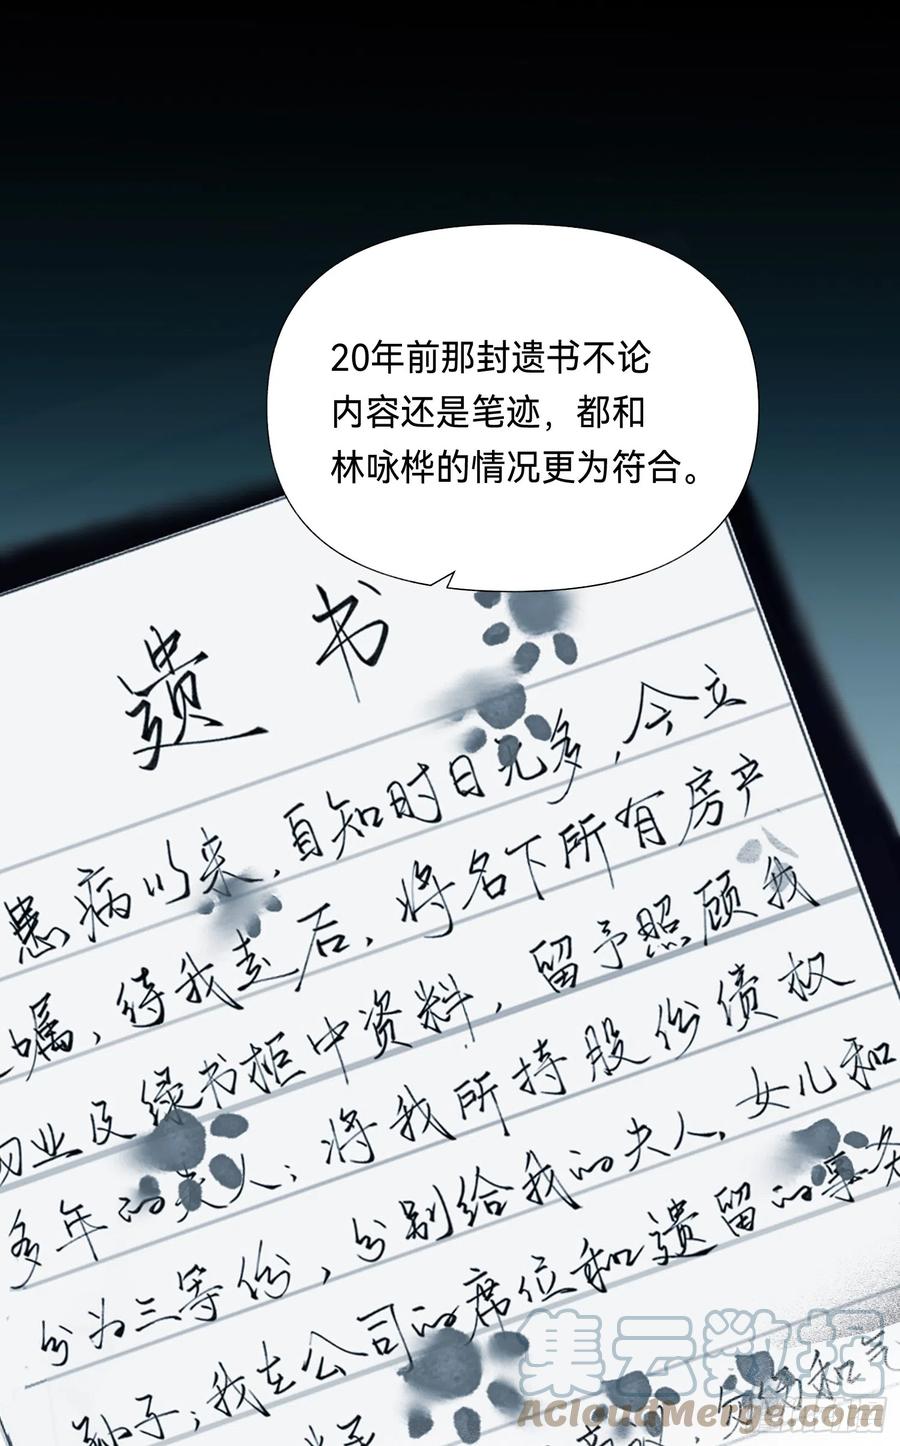 20年前那封遗书不论
内容还是笔迹，都和
林咏桦的情况更为符合。
遗书
患病以来，自知时日无多，今立
嘱，待我走后，将名下所有房产
物业及绿书柜中资料，留予照顾我
多年的夫人；将我所持股份债权
分为三等份，分别给我的夫人、女儿和
孙子；我在公司的席位和遗留的事务
定物和
集云数据
AcloudMerge.com